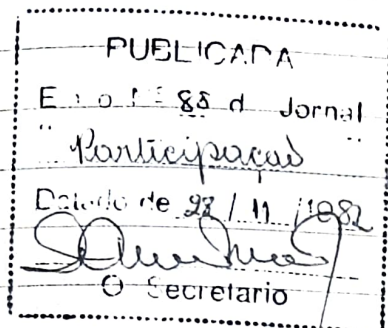 PUBLICADA
E o Nº 85 d Jornal
" Participação "
Datado de 28 / 11 / 1982
O Secretario